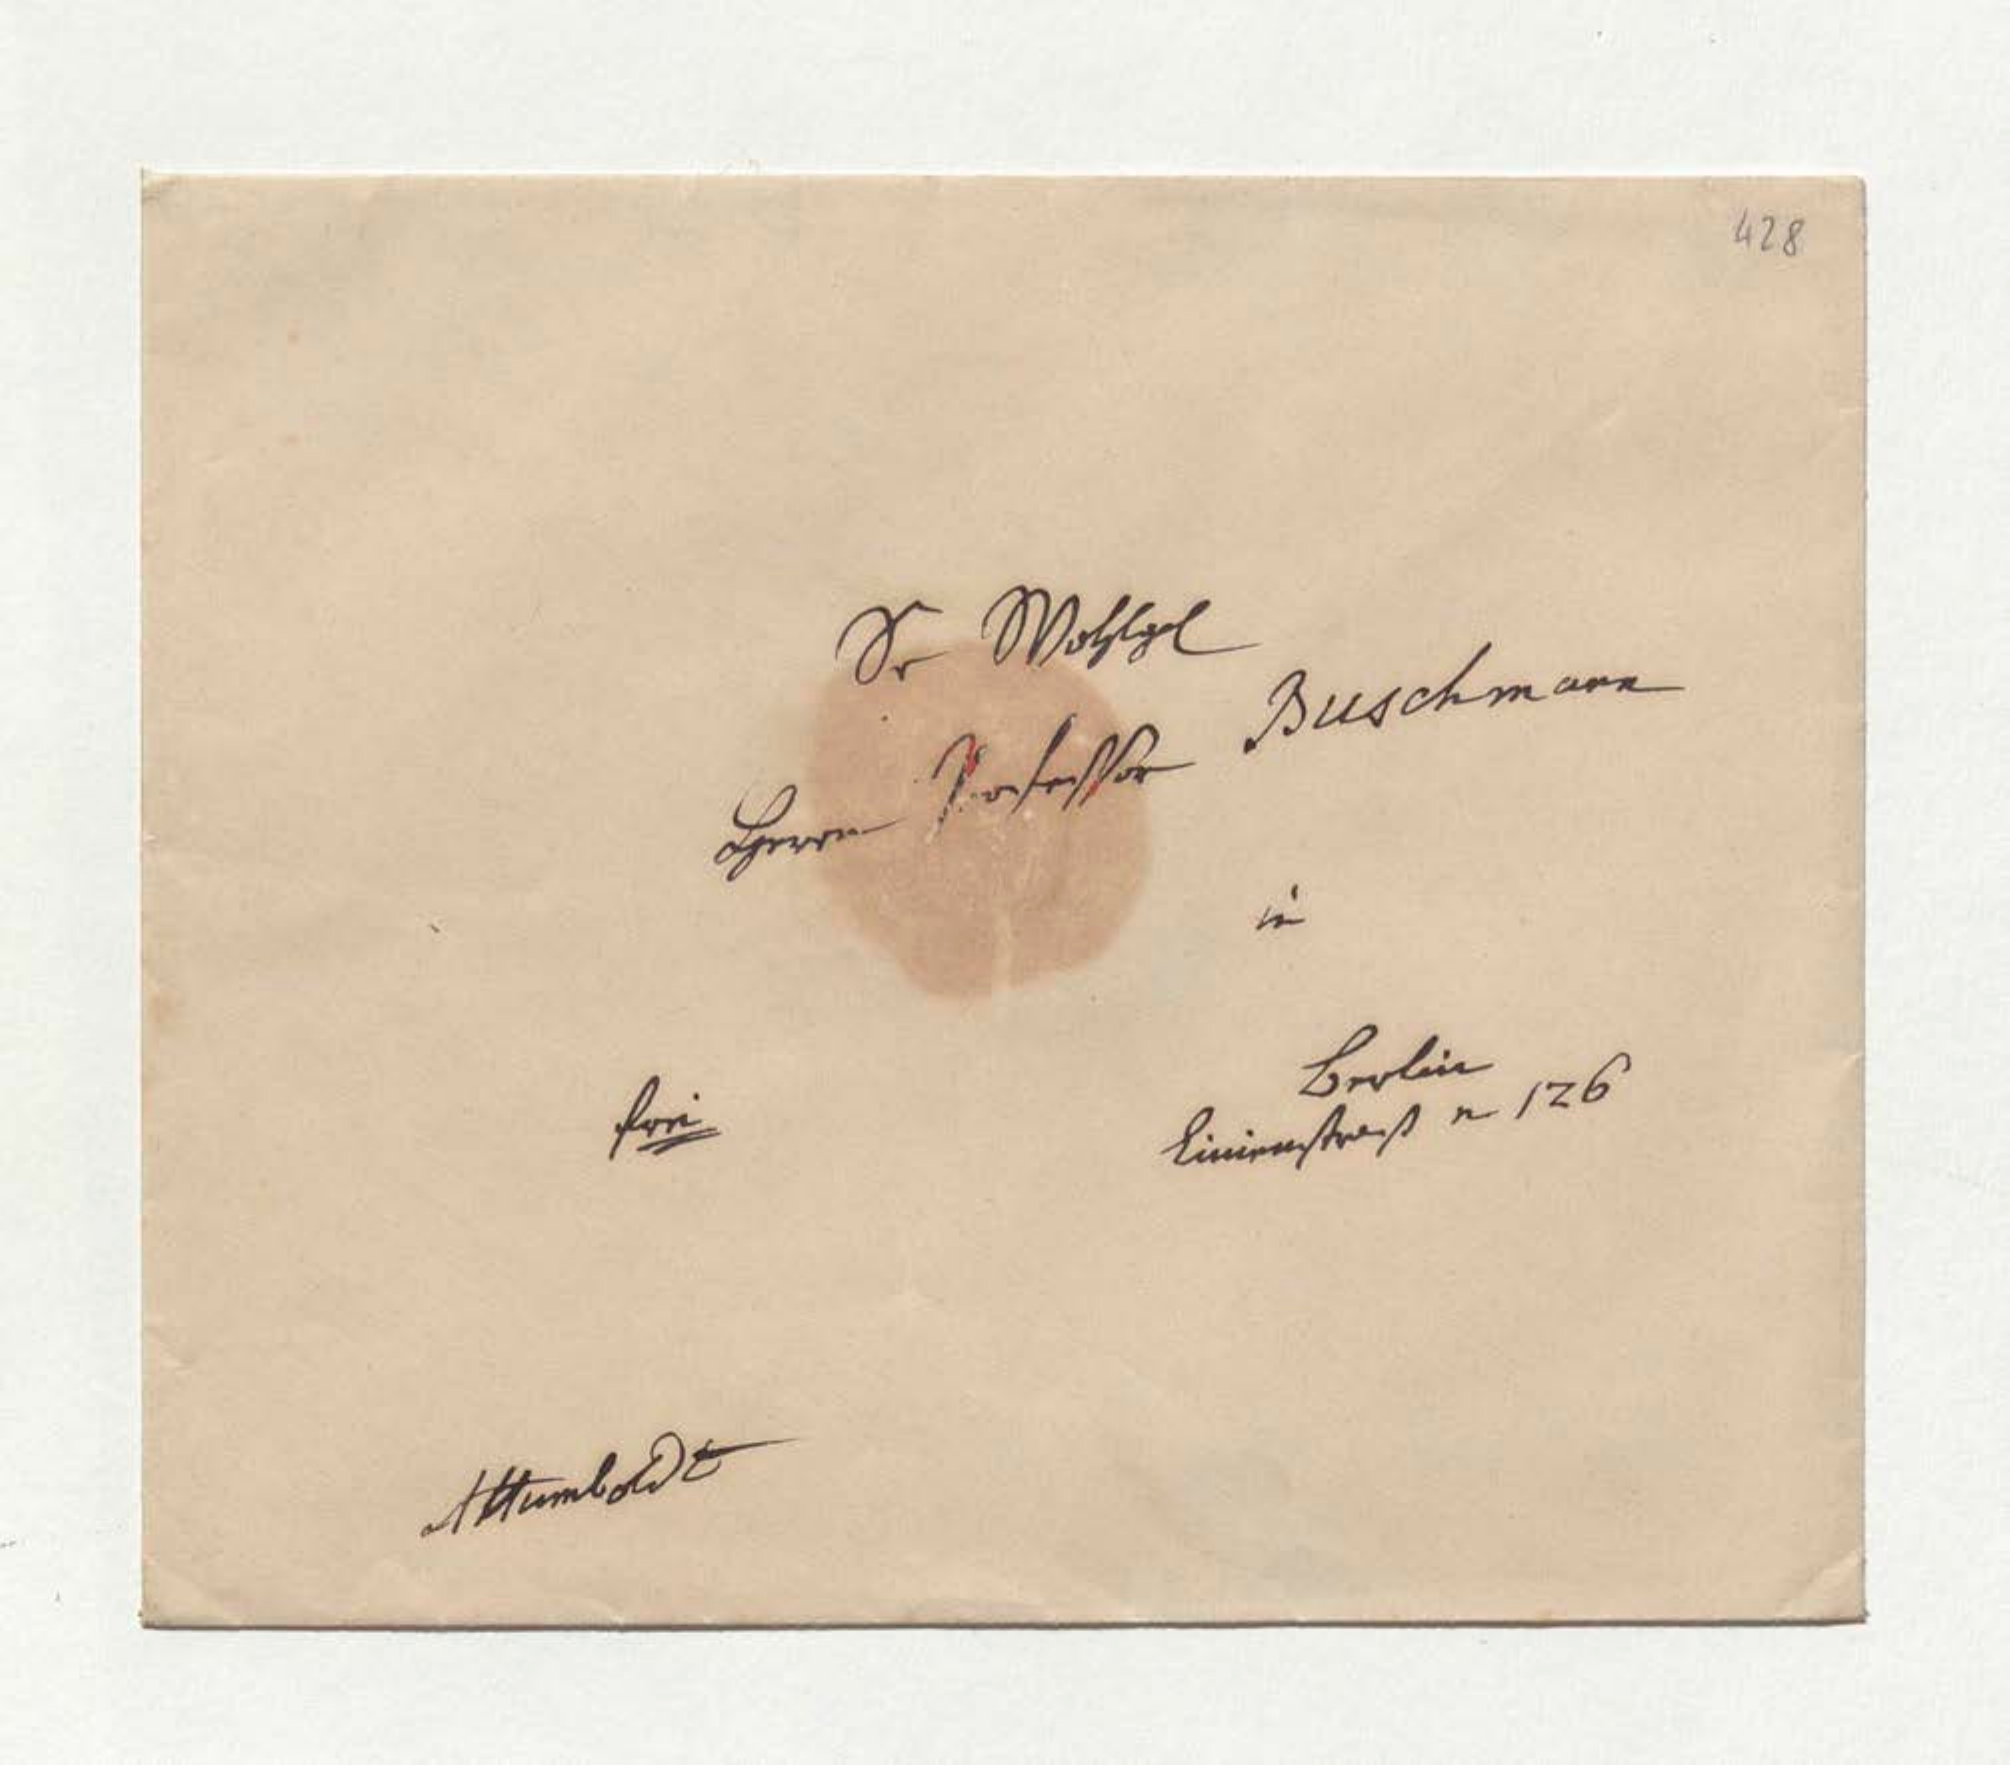 428
Sr Wohlgb
Herrn Professor Buschmann
in
Berlin
Linienstraß n 126
frei
AHumboldt